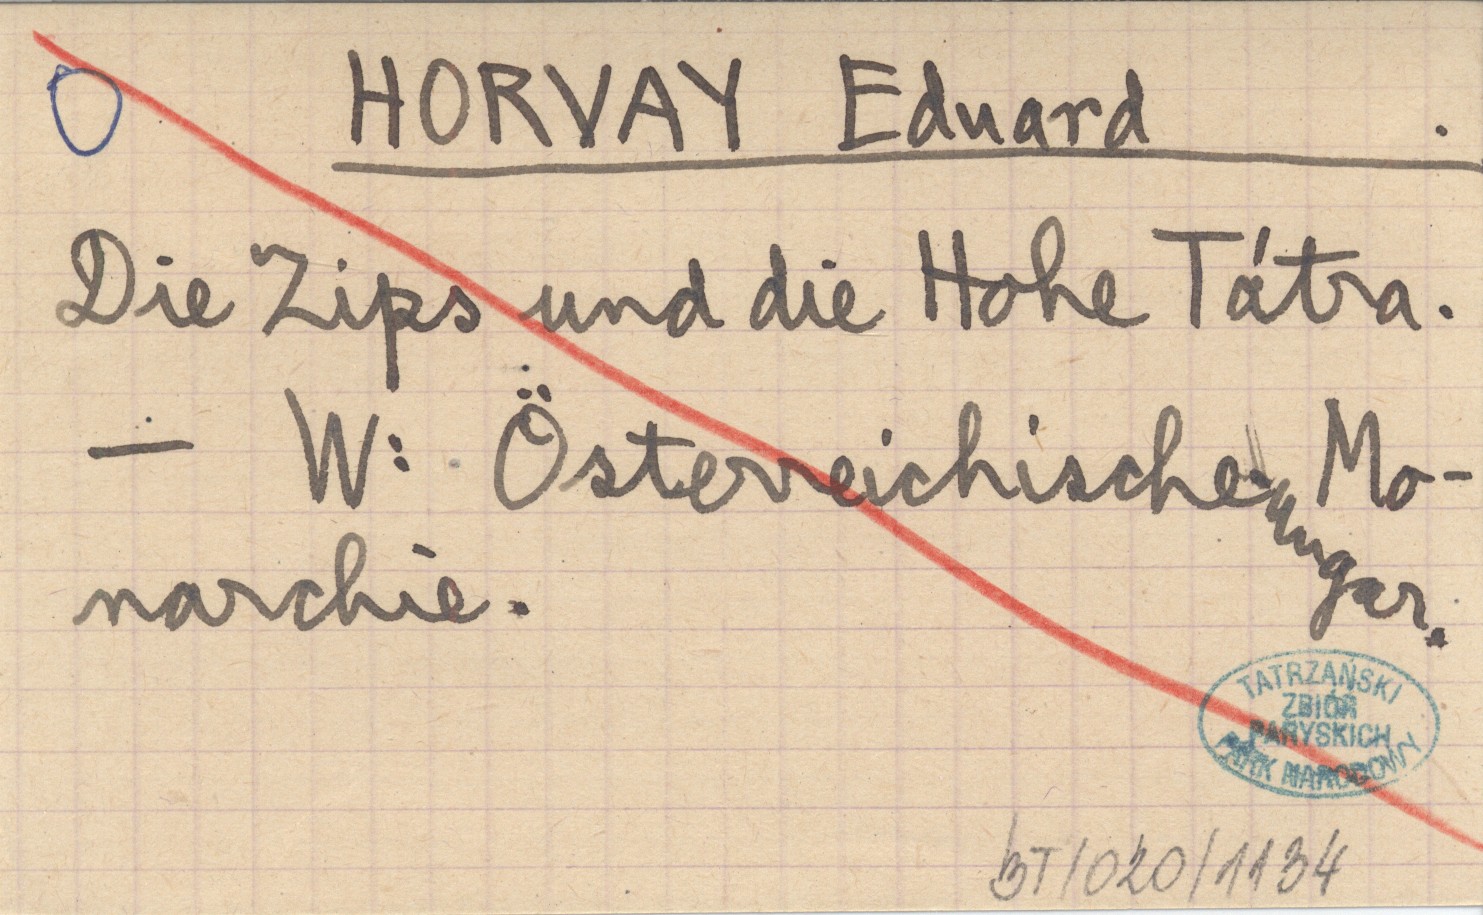 HORVAY Eduard .
Die Zips und die Hohe Tátra.
— W: Österreichische- Mo-
ungar.
narchie.
TATRZAŃSKI
ZBIÓR
PARYSKICH
PARK NARODOWY
BT/020/1134